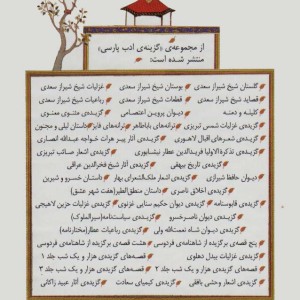 از مجموعه‌ی «گزینه‌ی ادب پارسی»
منتشر شده است:
گلستان شیخ شیراز سعدی بوستان شیخ شیراز سعدی غزلیات شیخ شیراز سعدی
قصاید شیخ شیراز سعدی قطعات شیخ شیراز سعدی رباعیات شیخ شیراز سعدی
کلیله و دمنه دیوان پروین اعتصامی گزیده‌ی مثنوی معنوی
گزیده‌ی غزلیات شمس تبریزی ترانه‌های باباطاهر ترانه‌های فایز داستان لیلی و مجنون
گزیده‌ی شعرهای اقبال لاهوری گزیده‌ی آثار پیر هرات خواجه عبدالله انصاری
گزیده‌ی تذکرةالاولیا فریدالدین عطار نیشابوری گزیده‌ی اشعار صائب تبریزی
گزیده‌ی تاریخ بیهقی گزیده‌ی آثار شیخ فخرالدین عراقی
دیوان حافظ شیرازی گزیده‌ی اشعار ملک‌الشعرای بهار داستان خسرو و شیرین
گزیده‌ی اخلاق ناصری داستان منطق‌الطیر (هفت شهر عشق)
گزیده‌ی قابوسنامه گزیده‌ی دیوان حکیم سنایی غزنوی گزیده‌ی غزلیات حزین لاهیجی
گزیده‌ی دیوان ناصرخسرو گزیده‌ی سیاست‌نامه (سیرالملوک)
گزیده‌ی دیوان شاه نعمت‌الله ولی گزیده‌ی رباعیات عطار (مختارنامه)
پنج قصه‌ی برگزیده از شاهنامه‌ی فردوسی هشت قصه‌ی برگزیده از شاهنامه‌ی فردوسی
گزیده‌ی غزلیات بیدل دهلوی قصه‌های گزیده‌ی هزار و یک شب جلد ۱
قصه‌های گزیده‌ی هزار و یک شب جلد ۲ قصه‌های گزیده‌ی هزار و یک شب جلد ۳
گزیده‌ی اشعار وحشی بافقی گزیده‌ی کیمیای سعادت گزیده‌ی آثار عبید زاکانی